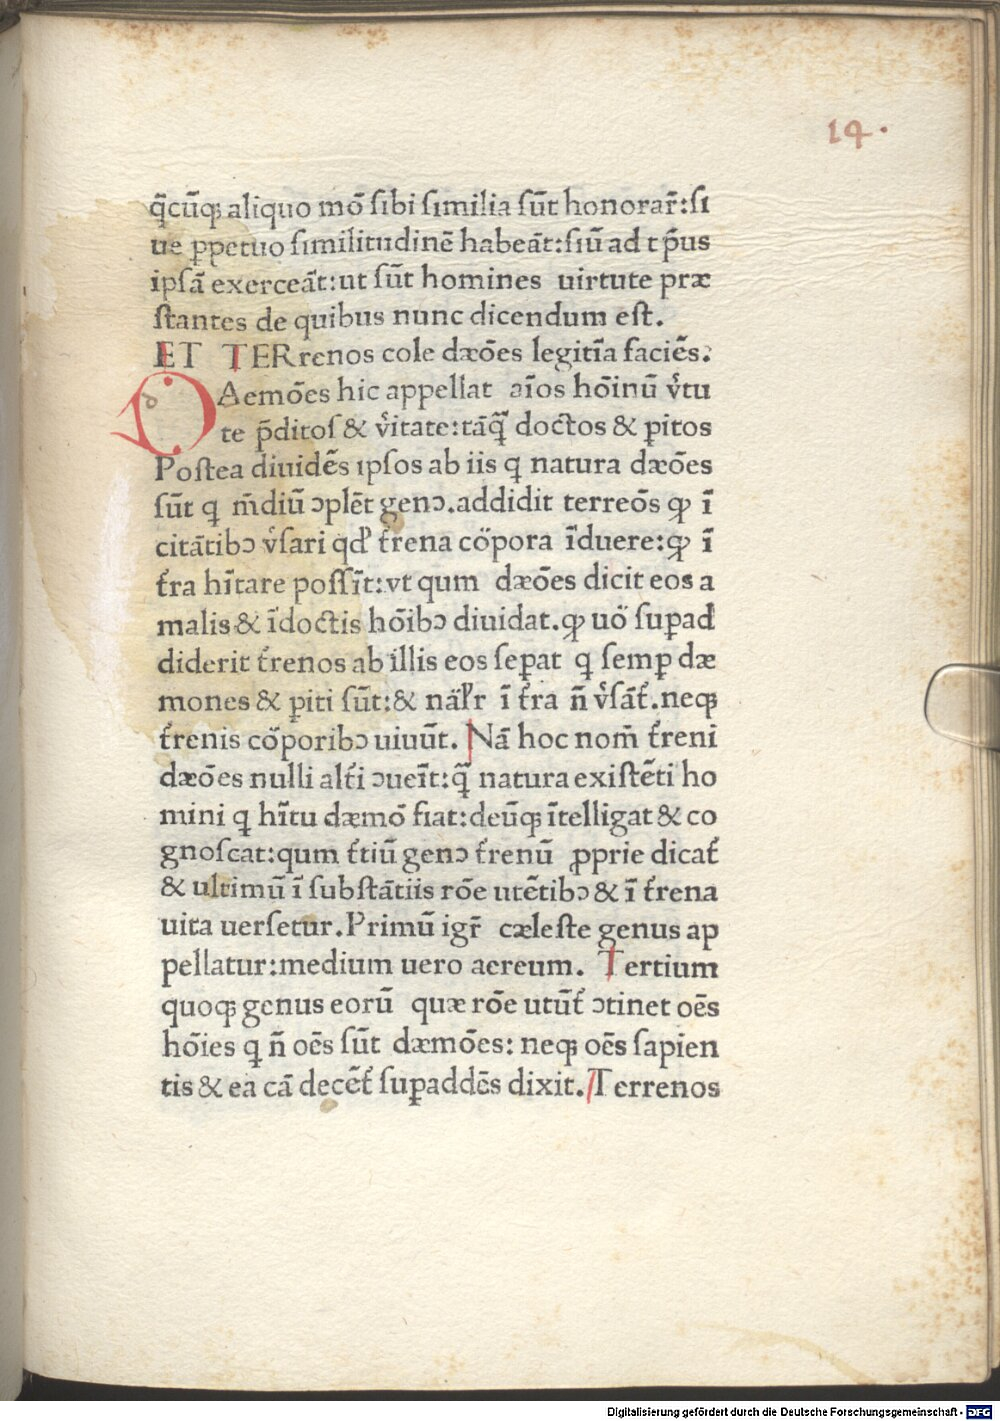 14.
q̄cūqꝫ aliquo mō ſibi ſimilia ſūt honorar̄:ſi
ue ꝑpetuo ſimilitudinē habeāt:ſiū ad tp̄us
ipſā exerceāt:ut ſūt homines uirtute præ
ſtantes de quibus nunc dicendum eſt.
ET TERrenos cole dæōes legitīa faciēs.
DAemōes hic appellat aīos hōinū v̓tu
te p̄ditoſ & v̓itate:tāq̄ doctos & ꝑitos
Poſtea diuidēs ipſos ab iis q natura dæōes
ſūt q m̄diū ↄplēt genↄ.addidit terreōs ꝙ ī
citātibↄ v̓ſari qd' t̄rena cōꝑora īduere:ꝙ ī
t̄ra hītare poſſīt:vt qum dæōes dicit eos a
malis & īdoctis hōibↄ diuidat.ꝙ uō ſuꝑad
diderit t̄renos ab illis eos ſeꝑat q ſemꝑ dæ
mones & ꝑiti ſūt:& nālr̄ ī t̄ra n̄ v̓ſāt̄.neqꝫ
t̄renis cōꝑoribↄ uiuūt. Nā hoc nom̄ t̄reni
dæōes nulli alt̄i ↄueīt:q̄ natura exiſtēti ho
mini q hītu dæmō fiat:deūqꝫ ītelligat & co
gnoſcat:qum t̄tiū genↄ t̄renū ꝓprie dicat̄
& ultimū ī ſubſtātiis rōe utētibↄ & ī t̄rena
uita uerſetur.Primū igr̄ cæleſte genus ap
pellatur:medium uero aereum. Tertium
quoqꝫ genus eorū quæ rōe utūt̄ ↄtinet oēs
hōies q n̄ oēs ſūt dæmōes: neqꝫ oēs ſapien
tis & ea cā decēt̄ ſuꝑaddēs dixit. Terrenos
Digitalisierung gefördert durch die Deutsche Forschungsgemeinschaft - DFG